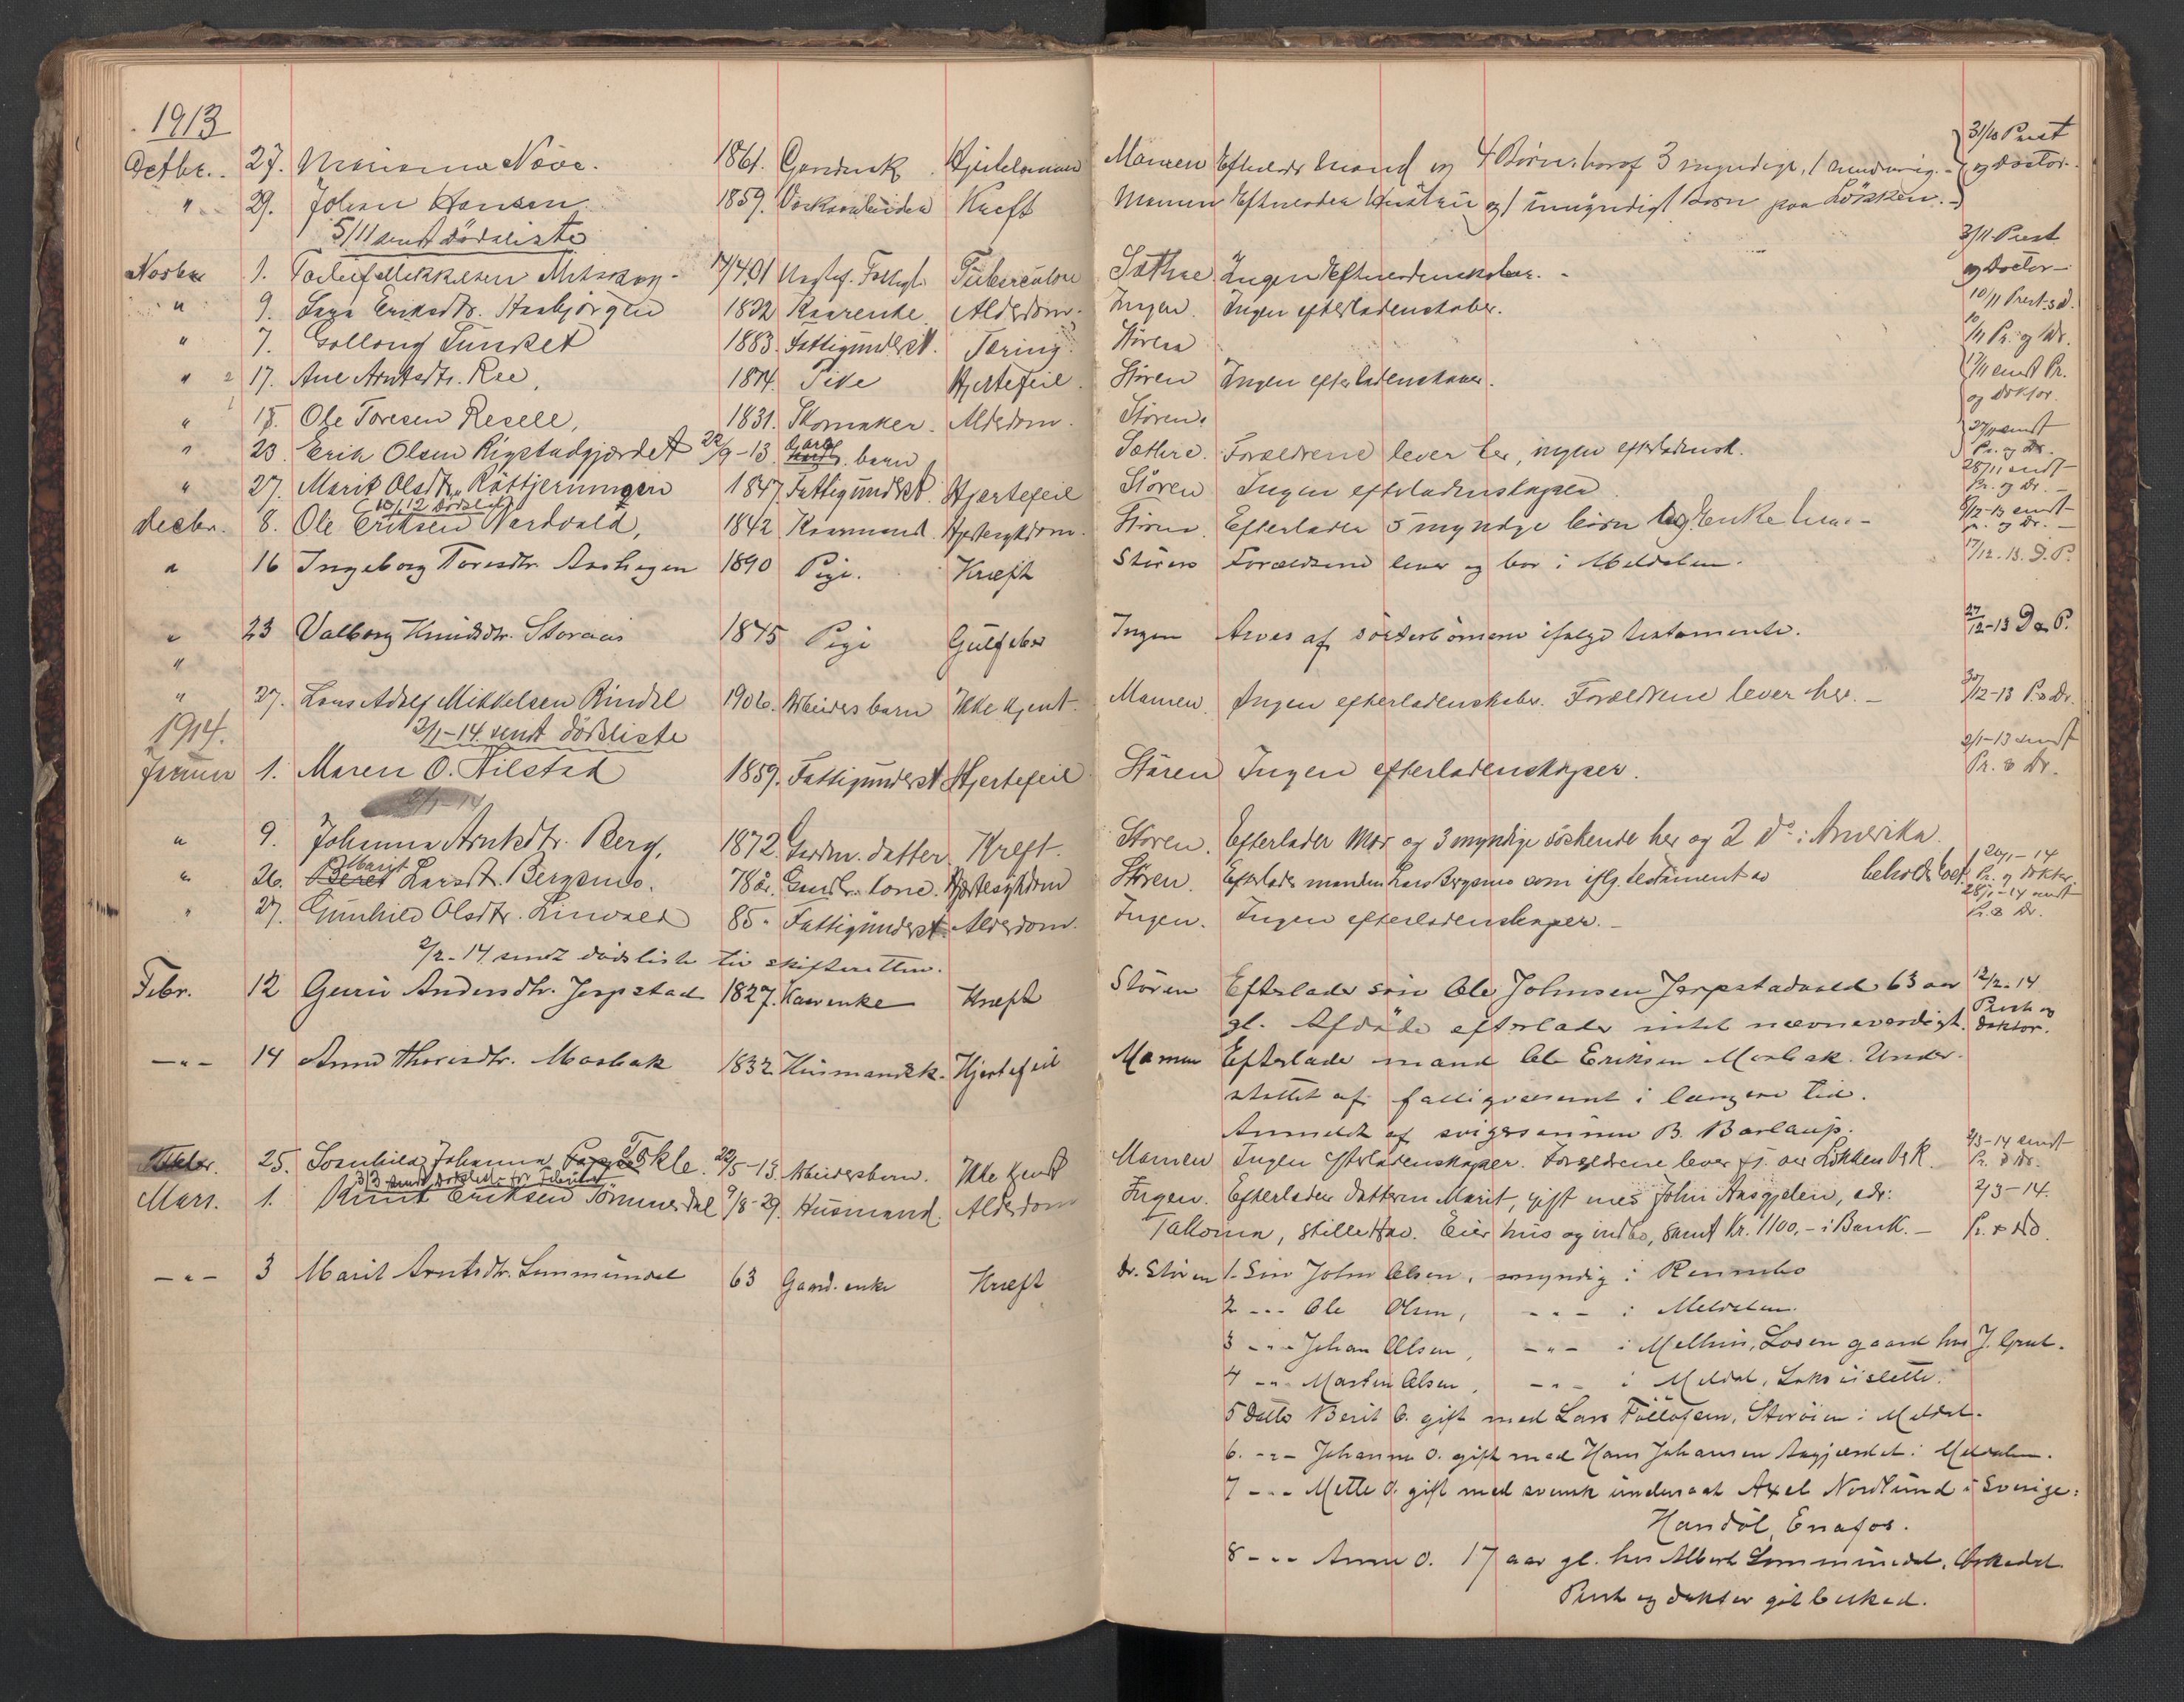 1913
Octbr. 27. Marianna Növe. 1861. Gaardmk. Hjertelammer Mamen Efterlader mand og 4 Börn, hvoraf 3 myndige, 1 umyndig. 31/10 Prest
og doctor.
" 29. Johan Hansen 1859. Kreft Mamen Efterlader Hustru og 1 umyndigt Barn paa Lökken.
5/11 sendt Dödsliste
Novbr 1. 17/4 01 Tuberculose Sæthre Ingen Efterladenskaber. 3/11 Prest
og Doctor
" 9. Eriksdtr. 1832 Kaarenke Alderdom. Ingen. Ingen efterladenskaber. 10/11 Prest & D.
" 7. Gollong Funket 1883. Fattigunderst. Tæring. Støren 10/11 Pr. og Dr.
" 17. Ane Arntsdtr. Ree, 1874. Pike Hjertefeil. Støren Ingen efterladenskaber. 17/11 sendt Pr.
og Doktor.
" 18. Ole Toresen Resell, 1831. Skomaker. Alderdom. Støren.
" 23. Erik Olsen Rigstadgjærdet 22/9-13 Gard. barn Sæthre. Forældrene lever her, ingen efterladensk. sendt
Pr. og Dr.
" 27. Marit Olsdtr. 1847 Fattigunderst. Hjærtefeil Støren Ingen efterladenskaper 28/11 sendt
Pr. og Dr.
10/12 Dödsliste
Decbr. 8. Ole Eriksen Nordvold, 1842 Kaarmand. Hjertesykdom. Støren. Efterlader 5 myndige börn og Enke 9/12-13 sendt
Pr. og Dr.
" 16 Ingeborg Toresdtr. Aashagen 1890 Pige. Kræft Støren Forældrene lever og bor i Meldalen. 17/12.13. D. P.
" 23 Valborg Knudsdtr. Storaas 1845 Pige Gulfeber Ingen Arves af sösterbörnene ifølge testamente. 27/12-13 D & P.
"
" 27. Lars Adolf Mikkelsen Rindal 1906. Arbeidersbarn Ikke kjent. Mamen. Ingen efterladenskaber. Forældrene lever her. 30/12-13 P. & Dr.
1914.
2/1-14. sendt dödsliste
Januar 1. Maren O. Hilstad 1859. Fattigunderst. Hjertefeil Støren Ingen efterladenskaper. 2/1-13 sendt
Pr. & Dr.
2/1-14
" 9. Johanna Arntsdtr. Berg, 1872. Gaardm. datter Kreft. Støren. Efterlader Mor og 3 myndige söskende her og 2 do i Amerika.
" 26. Beret Marit Larsdtr. Bergsmo. 78 år. Gaardbr. kone. Hjertesykdom Støren. Efterlader manden Lars Bergsmo som iflg. testament beholder boet. 26/1-14
Pr. og dokter
" 27. Gunhild Olsdtr. Linvold 85 " Fattigunderst. Alderdom. Ingen. Ingen efterladenskaper. 28/1-14 sendt
Pr. & Dr.
2/2-14 sendt dödsliste til skifteretten.
Febr. 12 Guru Andersdtr. Jerpstad 1827. Kaarenke Kræft Støren Efterlader sön Ole Johnsen Jerpstadvold 63 aar 12/2-14
gl. Afdöde efterlader intet nævneverdigt. Prest og
doktor.
-"- 14 Anne Thoresdtr. Mosbak 1832 Husmandsk. Hjertefeil Mamen Efterlader mand Ole Eriksen Mosbak. Under-
støttet af fattigvæsenet i længere tid.
Anmeldt af svigersønnen B. Barlaup.
Febr. 25. Johanna Tökle. 22/5-13 Arbeidersbarn. Ikke kjent Mamen Ingen Efterladenskaper. Forældrene lever Lökken Vrk. 2/3-14 sendt
Pr. & Dr.
3/3 sendt dödsliste for Februar
Mars. 1. Knut Eriksen Tömmerdal 9/8-29. Husmand. Alderdom Ingen. Efterlader datteren Marit, gift med John Aasgjelen, adr: 2/3-14.
Takoma, Stillehav. Eier hus og indbo, samt Kr. 1100,- i Bank. Pr. & Dr.
-"- 3 Marit Arntsdtr. Lummundal 63 Gaard. enke Kræft Dr. Støren 1. Sön John Olsen, myndig i Rennebo
2 -"- Ole Olsen, -"- i Meldalen.
3 -"- Johan Olsen, -"- i Melhus, Losen gaard hos J. Grut.
4 -"- Martin Olsen, -"- i Meldal,
5 Datter Berit O. gift med Lars Storöien i Meldal.
6. -"- Johanna O. gift med Hans Johansen Aagjerdet i Meldalen.
7 -"- Mette O. gift med svensk undersaat Axel Nordlund i Sverige:
Handöl, Enafos.
8 -"- Anne O. 17 aar gl. hos Albert Lummundal, Orkedal.
Prest og doktor git besked.